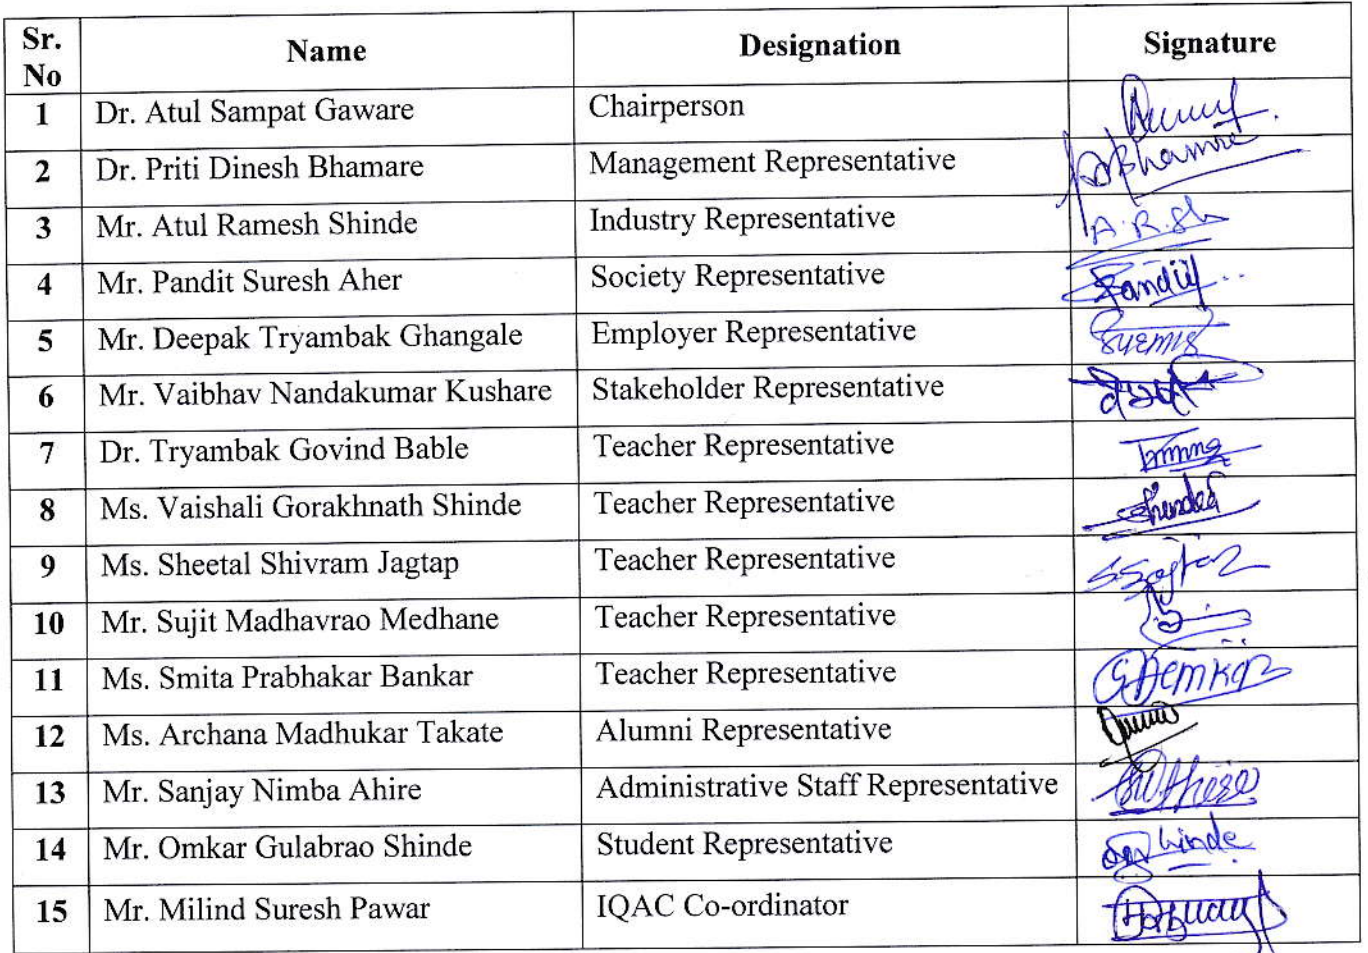 Sr. No Name Designation Signature
1 Dr. Atul Sampat Gaware Chairperson
2 Dr. Priti Dinesh Bhamare Management Representative
3 Mr. Atul Ramesh Shinde Industry Representative A.R.Sh
4 Mr. Pandit Suresh Aher Society Representative Pandit
5 Mr. Deepak Tryambak Ghangale Employer Representative
6 Mr. Vaibhav Nandakumar Kushare Stakeholder Representative
7 Dr. Tryambak Govind Bable Teacher Representative
8 Ms. Vaishali Gorakhnath Shinde Teacher Representative
9 Ms. Sheetal Shivram Jagtap Teacher Representative
10 Mr. Sujit Madhavrao Medhane Teacher Representative
11 Ms. Smita Prabhakar Bankar Teacher Representative
12 Ms. Archana Madhukar Takate Alumni Representative
13 Mr. Sanjay Nimba Ahire Administrative Staff Representative
14 Mr. Omkar Gulabrao Shinde Student Representative
15 Mr. Milind Suresh Pawar IQAC Co-ordinator